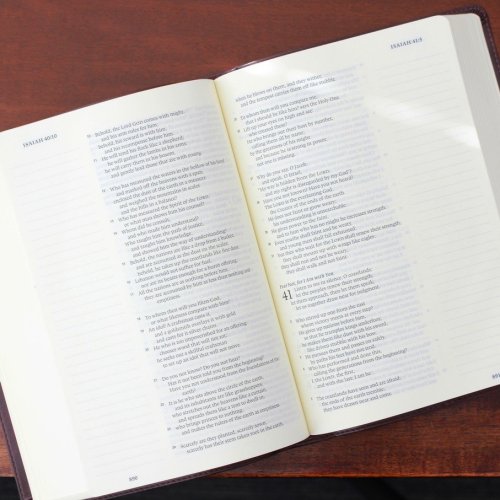 ISAIAH 40:10
10 Behold, the Lord GOD comes with might,
and his arm rules for him;
behold, his reward is with him,
and his recompense before him.
11 He will tend his flock like a shepherd;
he will gather the lambs in his arms;
he will carry them in his bosom,
and gently lead those that are with young.
12 Who has measured the waters in the hollow of his hand
and marked off the heavens with a span,
enclosed the dust of the earth in a measure
and weighed the mountains in scales
and the hills in a balance?
13 Who has measured the Spirit of the LORD,
or what man shows him his counsel?
14 Whom did he consult,
and who made him understand?
Who taught him the path of justice,
and taught him knowledge,
and showed him the way of understanding?
15 Behold, the nations are like a drop from a bucket,
and are accounted as the dust on the scales;
behold, he takes up the coastlands like fine dust.
16 Lebanon would not suffice for fuel,
nor are its beasts enough for a burnt offering.
17 All the nations are as nothing before him,
they are accounted by him as less than nothing and
emptiness.
18 To whom then will you liken God,
or what likeness compare with him?
19 An idol! A craftsman casts it,
and a goldsmith overlays it with gold
and casts for it silver chains.
20 He who is too impoverished for an offering
chooses wood that will not rot;
he seeks out a skillful craftsman
to set up an idol that will not move.
21 Do you not know? Do you not hear?
Has it not been told you from the beginning?
Have you not understood from the foundations of the
22 It is he who sits above the circle of the earth,
and its inhabitants are like grasshoppers;
who stretches out the heavens like a curtain,
and spreads them like a tent to dwell in;
23 who brings princes to nothing,
and makes the rulers of the earth as emptiness.
24 Scarcely are they planted, scarcely sown,
scarcely has their stem taken root in the earth,
ISAIAH 41:5
when he blows on them, and they wither,
and the tempest carries them off like stubble.
25 To whom then will you compare me,
that I should be like him? says the Holy One.
26 Lift up your eyes on high and see:
who created these?
He who brings out their host by number,
calling them all by name;
by the greatness of his might,
not one is missing.
27 Why do you say, O Jacob,
and speak, O Israel,
"My way is hidden from the LORD,
and my right is disregarded by my God"?
28 Have you not known? Have you not heard?
The LORD is the everlasting God,
the Creator of the ends of the earth.
He does not faint or grow weary;
his understanding is unsearchable.
29 He gives power to the faint,
and to him who has no might he increases strength.
30 Even youths shall faint and be weary,
and young men shall fall exhausted;
31 but they who wait for the LORD shall renew their strength;
they shall mount up with wings like eagles;
they shall run and not be weary;
they shall walk and not faint.
Fear Not, for I Am with You
41 Listen to me in silence, O coastlands;
let the peoples renew their strength;
let them approach, then let them speak;
let us together draw near for judgment.
2 Who stirred up one from the east
whom victory meets at every step?
He gives up nations before him,
so that he tramples kings underfoot;
he makes them like dust with his sword,
like driven stubble with his bow.
3 He pursues them and passes on safely,
by paths his feet have not trod.
4 Who has performed and done this,
calling the generations from the beginning?
I, the LORD, the first,
and with the last; I am he.
5 The coastlands have seen and are afraid;
the ends of the earth tremble;
they have drawn near and come.